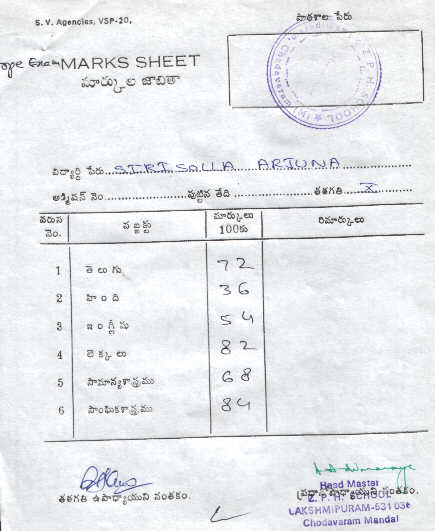 S. V. Agencies, VSP-20.
పాఠశాల పేరు
MARKS SHEET
మార్కుల జాబితా
Z. P. H. SCHOOL
విద్యార్థి పేరు SIRISALLA ARJUNA
అడ్మిషన్ నెం. పుట్టిన తేది తరగతి X
వరుస నెం. సబ్జెక్టు మార్కులు 100కు రిమార్కులు
1 తెలుగు 72
2 హింది 36
3 ఇంగ్లీషు 54
4 లెక్కలు 82
5 సామాన్యశాస్త్రము 68
6 సాంఘికశాస్త్రము 84
తరగతి ఉపాధ్యాయుని సంతకం.
ప్రధానోపాధ్యాయుని సంతకం.
Head Mastei
Z. P. H. SCHOOL
LAKSHMIPURAM-531 036
Chodavaram Mandal